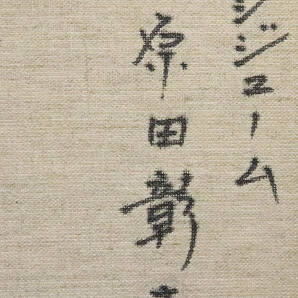 ジジューム
原田彰